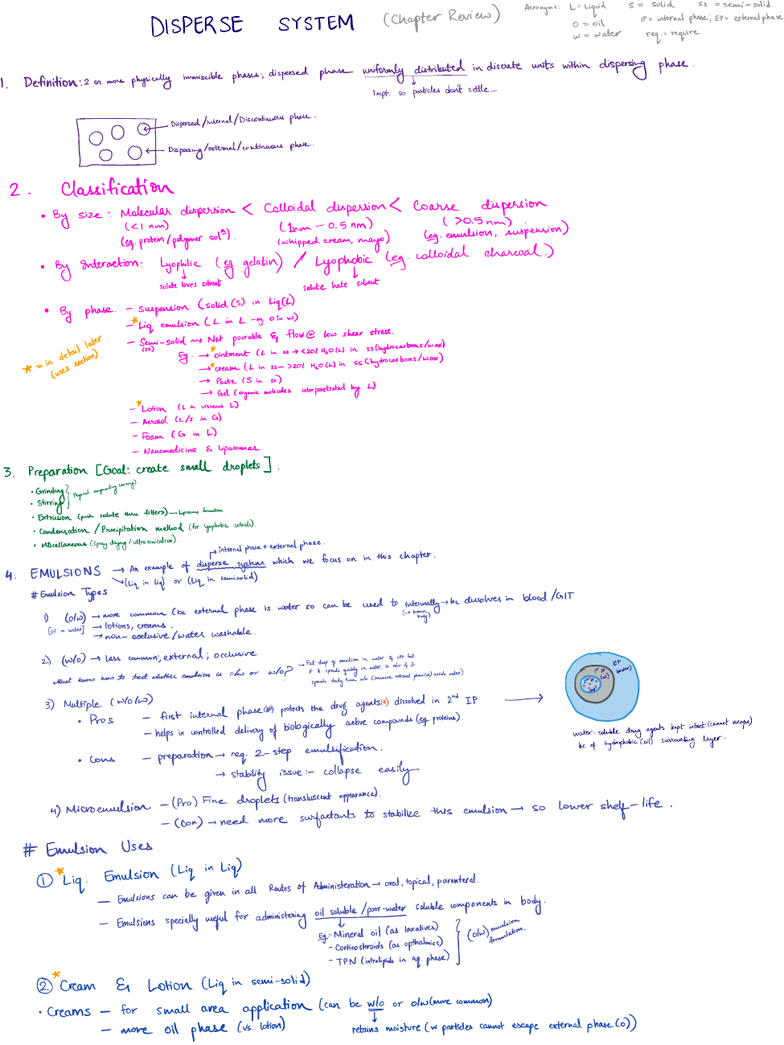 DISPERSE SYSTEM (Chapter Review)
Acronyms: L = Liquid S = Solid SS = semi-solid
O = oil IP = internal phase; EP = external phase
W = water req. = require
1. Definition: 2 or more physically immiscible phases; dispersed phase uniformly distributed in discrete units within dispersing phase.
Impt. so particles don't settle...
Dispersed/internal/Discontinuous phase.
Dispersing/external/continuous phase.
2. Classification
• By size: Molecular dispersion < Colloidal dispersion < Coarse dispersion
(<1 nm) (1nm - 0.5 nm) (>0.5 nm)
(eg. protein/polymer solⁿ). (whipped cream, mayo) (eg. emulsion, suspension)
• By Interaction: Lyophilic (eg gelatin) / Lyophobic (eg. colloidal charcoal.)
solute loves solvent solute hate solvent
• By phase. - Suspension (solid (S) in Liq(L)
- *Liq emulsion (L in L - eg O in W)
- Semi-solid → Not pourable & flow @ low shear stress.
(SS)
Eg. → *ointment (L in SS → <20% H₂O(L) in SS (hydrocarbons/wax)
→ *cream (L in SS → >20% H₂O(L) in SS (hydrocarbons/wax)
→ Paste (S in SS)
→ Gel (organic molecules interpenetrated by L)
* = in detail later
(uses section)
- *Lotion (L in viscous L)
- Aerosol (L/S in G)
- Foam (G in L)
- Nanomedicine & Liposomes
3. Preparation [Goal: create small droplets].
• Grinding
• Stirring
• Extrusion (push solute thru filters) → Liposome formation
• Condensation / Precipitation method (for lyophobic colloids).
• Miscellaneous (spray drying / ultrasonication).
internal phase + external phase.
4. EMULSIONS → An example of disperse system which we focus on in this chapter.
(Liq in Liq) or (Liq in semisolid)
# Emulsion Types
1) (o/w) → more common (bc external phase is water so can be used to internally → bc dissolves in blood/GIT
[oil + water] → lotions, creams.
→ non-occlusive/water washable.
2) (w/o) → Less common; external; occlusive
Must know how to test whether emulsion is o/w or w/o?
3) Multiple (w/o/w)
• Pros - first internal phase(IP) protects the drug agents(•) dissolved in 2nd IP
- helps in controlled delivery of biologically active compounds (eg. proteins).
EP
(water)
water-soluble drug agents kept intact (cannot escape)
bc of hydrophobic (oil) surrounding layer.
• Cons - preparation → req. 2-step emulsification.
→ stability issue:- collapse easily
4) Microemulsion - (Pro) Fine droplets (translucent appearance).
- (Con) → need more surfactants to stabilize this emulsion → so lower shelf-life.
# Emulsion Uses
① *Liq. Emulsion (Liq in Liq)
- Emulsions can be given in all Routes of Administeration → oral, topical, parenteral.
- Emulsions specially useful for administering oil soluble/poor-water soluble components in body.
Eg:- Mineral oil (as laxatives)
- Corticosteroids (as opthalmics)
- TPN (intralipids in aq. phase)
(o/w) emulsion
formulation.
② *Cream & Lotion (Liq in semi-solid)
• Creams - for small area application (can be w/o or o/w (more common)
- more oil phase (vs. lotion) retains moisture (w particles cannot escape external phase (o))